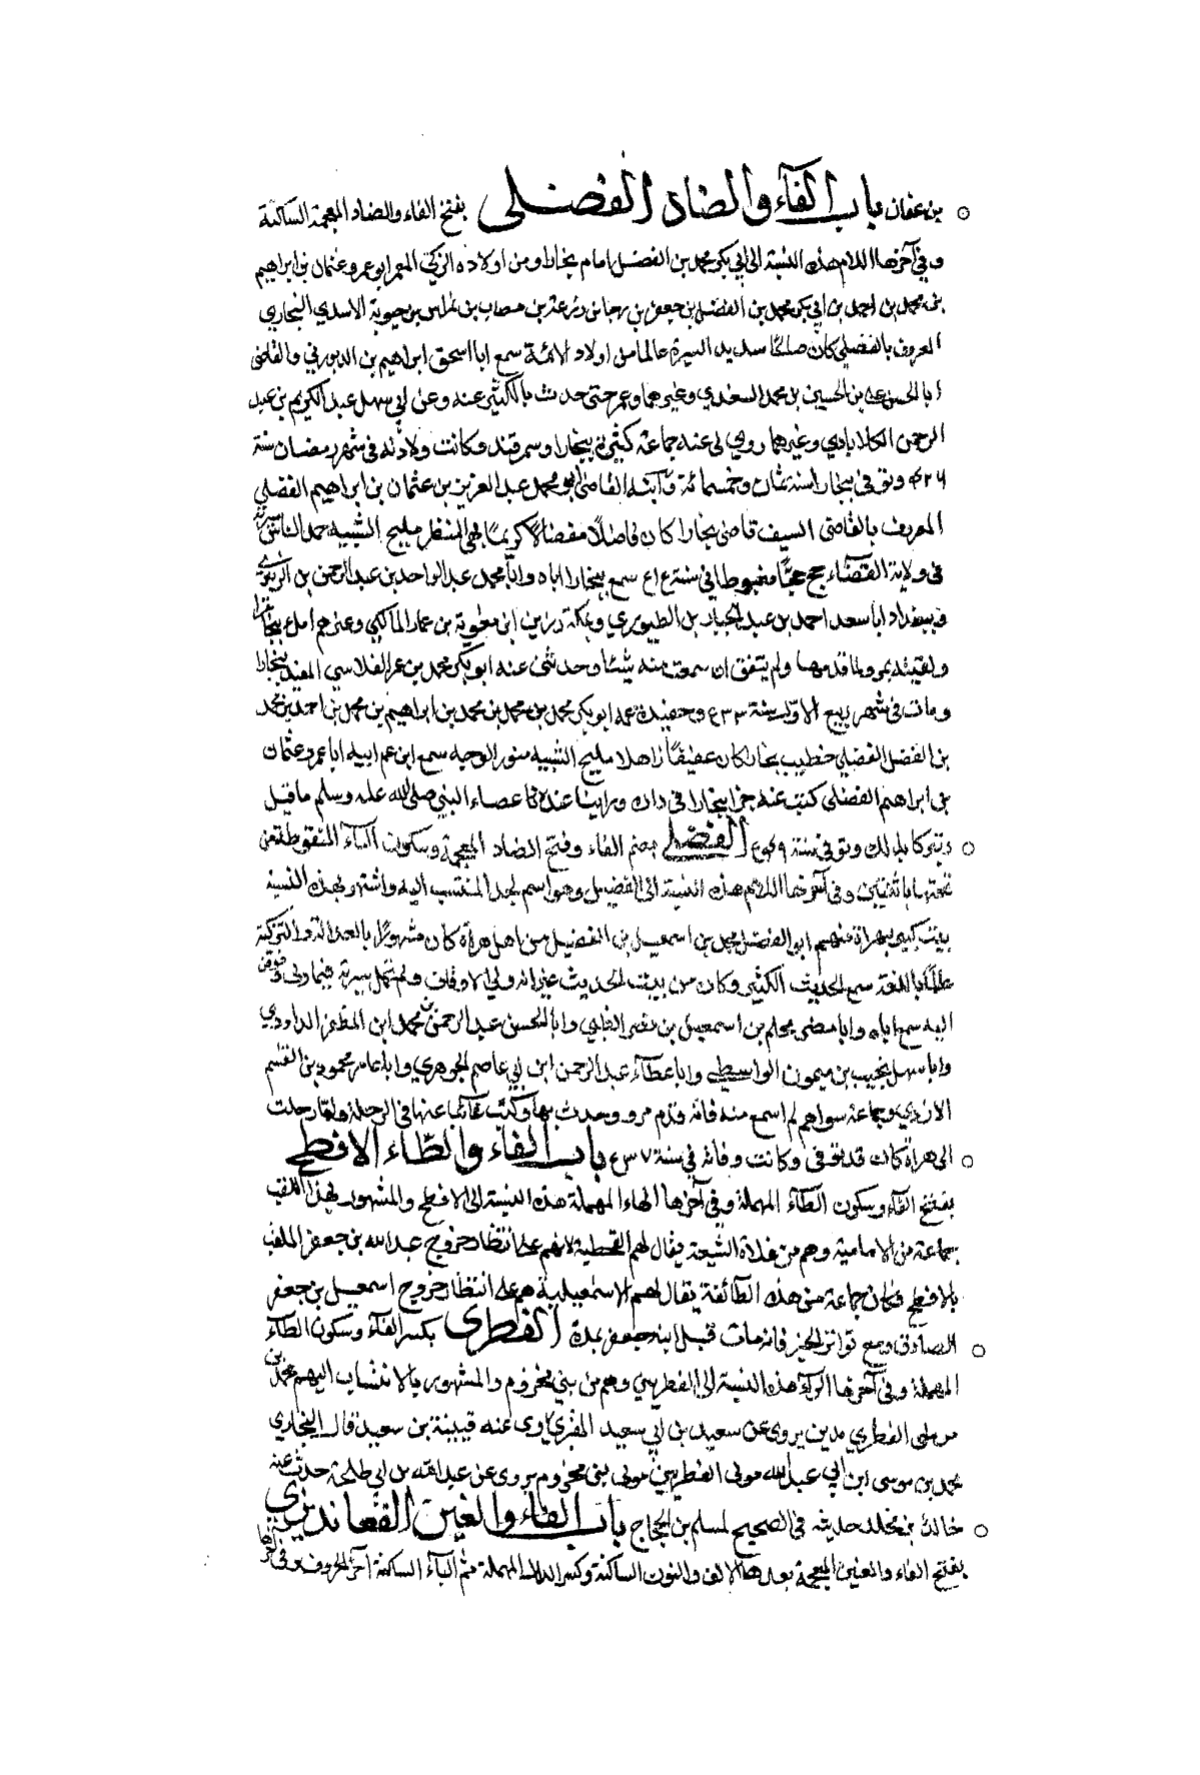 بن عفان باب الفآء والضاد الفضلى بفتح الفاء والضاد المعجمة الساكنة
وفي آخرها اللام هذه النسبة الى ابي بكر محمد بن الفضل امام بخارا ومن اولاده الزكي المعمر ابو عمرو عثمان بن ابراهيم
بن محمد بن احمد بن ابي بكر محمد بن الفضل بن جعفر بن رجا بن زرعة بن بن حيوية الاسدي البخاري
المعروف بالفضلي كان صالحا سديد السيرة عالما من اولاد الائمة سمع ابا اسحق ابراهيم بن والقاضى
ابا الحسن علي بن الحسين بن محمد السغدي وغيرهما وعمر حتى حدث بالكثير عنه وعن ابي سهل عبد الكريم بن عبد
الرحمن الكلاباذي وغيرهما روى لى عنه جماعة كثيرة ببخارا وسمرقند وكانت ولادته فى شهر رمضان سنة
وتوفى ببخارا سنة ثمان وخمسمائة وآبنه القاضى ابو محمد عبد العزيز بن عثمان بن ابراهيم الفضلي
المعروف بالقاضى السيف قاضى بخارا كان فاضلا مفضالا كريما بهي المنظر مليح الشيبه حمد الناس سيرته
فى ولاية القضاء حج حجا مغبوطا في سنة سمع ببخارا اباه وابا محمد عبد الواحد بن عبد الرحمن بن
وببغداد ابا سعد احمد بن عبد الجبار بن الطيوري وبمكة رزين ابن معوية بن عمار المالكي وغيرهم املى ببخارا
ولقيته بمرو لما قدمها ولم يتفق ان سمعت منه شيئا وحدثنى عنه ابو بكر محمد بن عمر القلاسي المفيد ببخارا
ومات فى شهر ربيع الاول سنة وحفيد عمه ابو بكر محمد بن محمد بن محمد بن ابراهيم بن محمد بن احمد بن محمد
بن الفضل الفضلي خطيب بخارا كان عفيفا زاهدا مليح الشيبه منور الوجه سمع ابن عم ابيه ابا عمرو عثمان
بن ابراهيم الفضلى كتبت عنه جزا ببخارا فى داره وراينا عنده عصاء النبي صلى الله عليه وسلم ما قيل
بذلك وتوفي سنة الفضيلي بضم الفاء وفتح الضاد المعجمة وسكون الياء المنقوطة من
تحتها باثنتين وفى آخرها اللام هذه النسبة الى الفضيل وهو اسم لجد المنتسب اليه واشتهر بهذه النسبة
بيت كبير بهراة منهم ابو الفضل محمد بن اسمعيل بن الفضيل من اهل هراة كان مشهورا بالعدالة والتزكية
سمع الحديث الكثير وكان من بيت الحديث غير انه ولي الاوقاف ولم تحمل سيرته فيما ولى وفوض
اليه سمع اباه وابا مضر محلم بن اسمعيل بن مضر الضبي وابا الحسن عبد الرحمن بن محمد ابن المظفر الداودي
وابا سهل نجيب بن ميمون الواسطي وابا عطآء عبد الرحمن ابن ابي عاصم الجوهري وابا عامر محمود بن القسم
الازدي وجماعة سواهم لم اسمع منه فانه قدم مرو وحدث بها وكنت غائبا عنها فى الرحلة ولما رحلت
الى هراة كان قد توفى وكانت وفاته في سنة باب الفاء والطاء الافطح
بفتح الفآء وسكون الطآء المهملة وفي آخرها الحاء المهملة هذه النسبة الى الافطح والمشهور بهذا اللقب
جماعة من الامامية وهم من غلاة الشيعة يقال لهم الفطحية لانهم على انتظار خروج عبد الله بن جعفر الملقب
بالافطح وكان جماعة من هذه الطآئفة يقال لهم الاسمعيلية هم على انتظار خروج اسمعيل بن جعفر
الصادق ومع تواتر الخبر فانه مات قبل ابيه جعفر بمدة الفطرى بكسر الفآء وسكون الطآء
المهملة وفى آخرها الرآء هذه النسبة الى الفطريين وهم من بني مخزوم والمشهور بالانتساب اليهم محمد بن
موسى الفطري مديني يروى عن سعيد بن ابي سعيد المقبري روى عنه قتيبة بن سعيد قال البخاري
محمد بن موسى ابن ابي عبد الله مولى الفطريين مولى بنى مخزوم يروى عن عبد الله بن ابي طلحة حدث عنه
خالد بن مخلد حديثه في الصحيح لمسلم بن الحجاج باب الفاء والغين الفغانديزى
بفتح الفاء والغين المعجمة بعدها الالف والنون الساكنة وكسر الدال المهملة ثم اليآء الساكنة آخر الحروف وفى آخرها